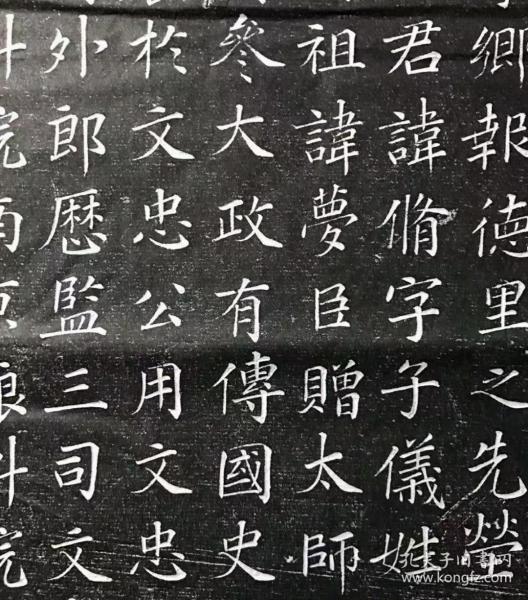 鄉報徳里之先塋
君諱脩字子儀姓
祖諱夢臣贈太師
參大政有傳國史
於文忠公用文忠
外郎歴監三司文
孔夫子旧书网
www.kongfz.com